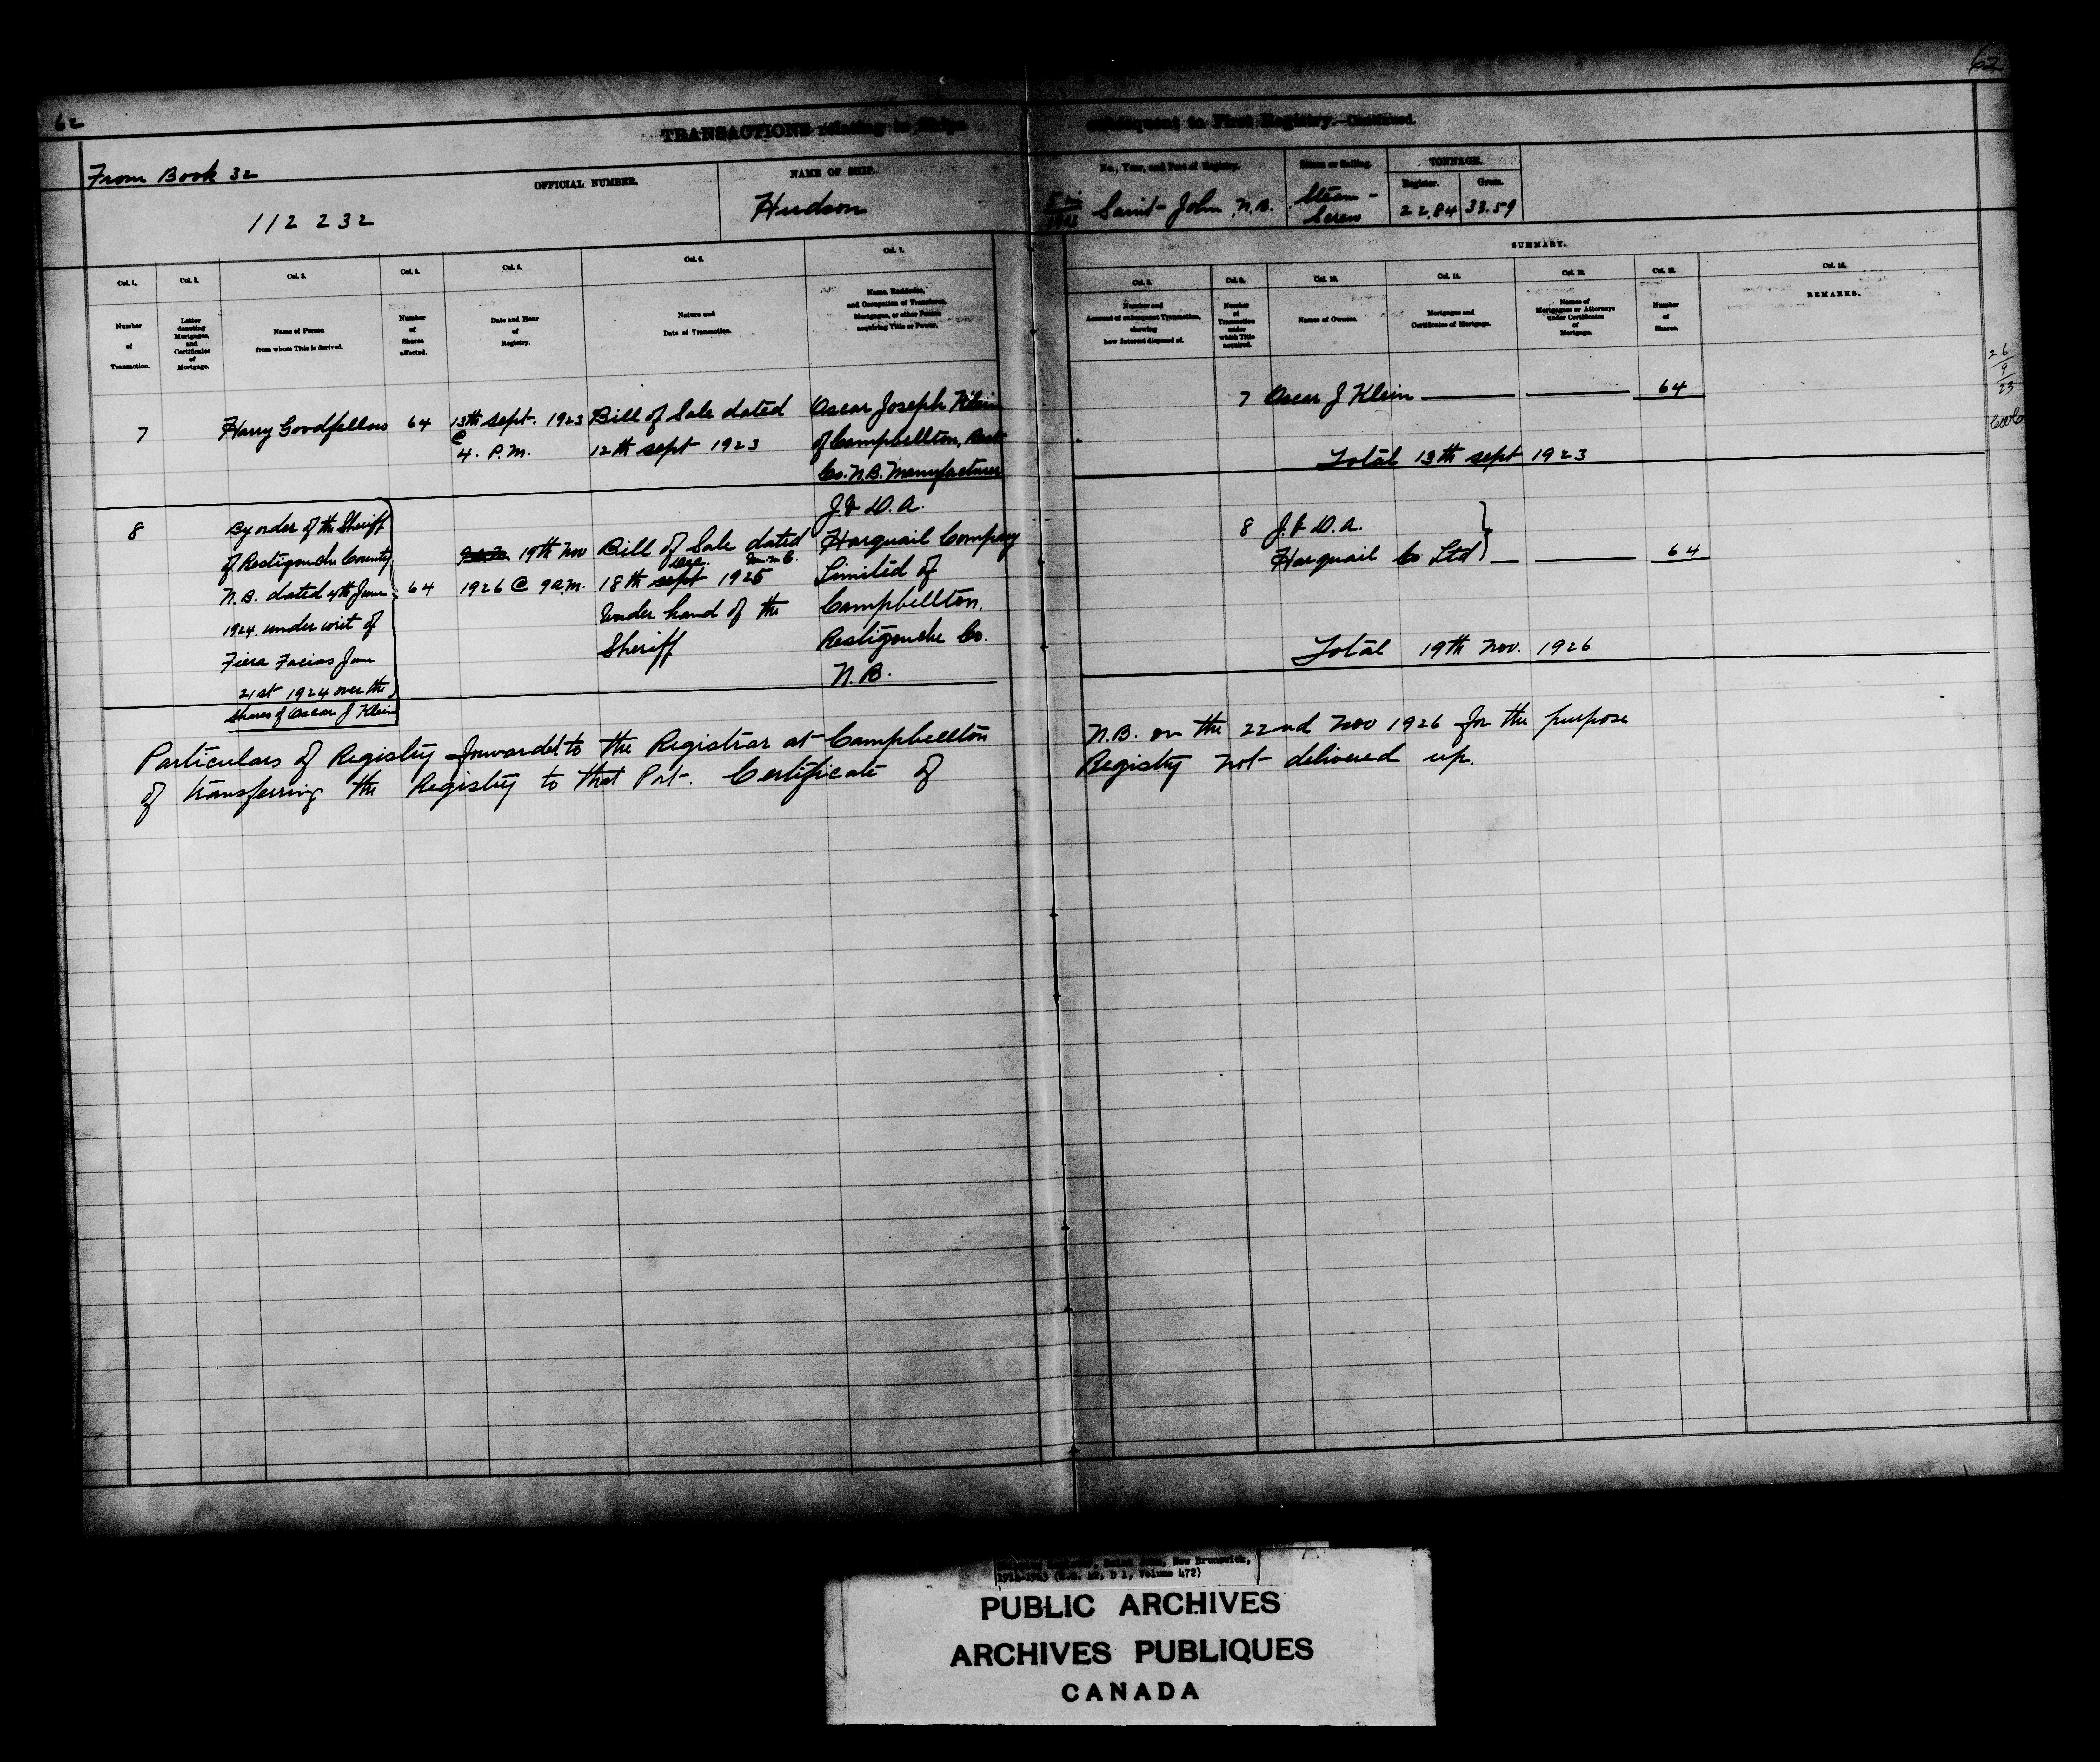 62
62
TRANSACTIONS relating to Ships subsequent to First Registry.—Continued.
From Book 32
OFFICIAL NUMBER.
112 232
NAME OF SHIP.
Hudson
No., Year, and Port of Registry.
Saint John, N.B.
Steam or Sailing.
Steam -
Screw
TONNAGE.
Register.
Gross.
22.84
33.59
SUMMARY.
Col. 1.
Col. 2.
Col. 3.
Col. 4.
Col. 5.
Col. 6.
Col. 7.
Col. 8.
Col. 9.
Col. 10.
Col. 11.
Col. 12.
Col. 13.
Number
of
Transaction.
Letter
denoting
Mortgages,
and
Certificates
of
Mortgage.
Name of Person
from whom Title is derived.
Number
of
Shares
affected.
Date and Hour
of
Registry.
Nature and
Date of Transaction.
Name, Residence,
and Occupation of Transferee,
Mortgagee, or other Person
acquiring Title or Power.
Number and
Account of subsequent Transaction,
showing
how Interest disposed of.
Number
of
Transaction
under
which Title
acquired.
Names of Owners.
Mortgages and
Certificates of Mortgage.
Names of
Mortgagees or Attorneys
under Certificates
of
Mortgage.
Number
of
Shares.
REMARKS.
7
Harry Goodfellow
64
13th sept. 1923
@
4. P.M.
Bill of Sale dated
12th sept 1923
Oscar Joseph Klein
of Campbellton, Rest
Co. N.B. Manufacturer
7 Oscar J Klein
64
Total 13th sept 1923
26
9
23
8
By order of the Sheriff
of Restigouche County
N.B. dated 4th June
1924 under writ of
Fiera Facias June
21st 1924 over the
shares of Oscar J Klein
64
19th Nov
1926 @ 9 a.m.
Bill of Sale dated
Dec.
18th sept 1925
Under hand of the
Sheriff
J. & D. A.
Harquail Company
Limited of
Campbellton.
Restigouche Co.
N.B.
8 J. & D. A.
Harquail Co Ltd
64
Total 19th Nov. 1926
Particulars of Registry forwarded to the Registrar at Campbellton N.B. on the 22nd Nov 1926 for the purpose
of transferring the Registry to that Port. Certificate of Registry not delivered up.
Saint John, New Brunswick,
(R.G. 42, D 1, Volume 472)
PUBLIC ARCHIVES
ARCHIVES PUBLIQUES
CANADA